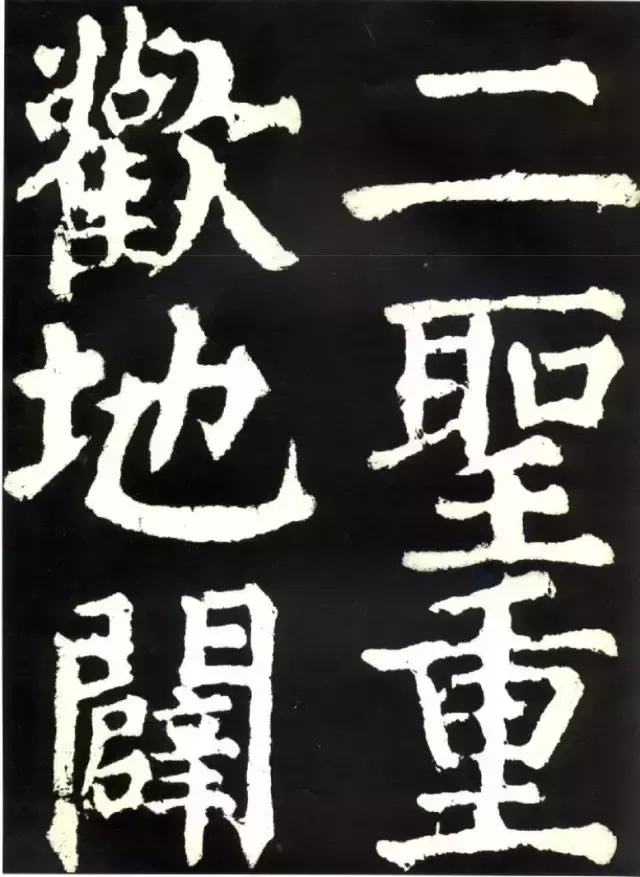 二聖重
歡地闢